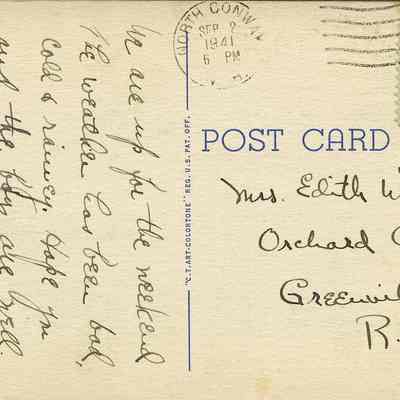 We are up for the weekend
The weather has been bad,
cold & rainey. Hope you
and the boys are well.
NORTH CONWAY
SEP 2
1941
6 PM
N.H.
"C.T. ART-COLORTONE" REG. U.S. PAT. OFF.
POST CARD
Mrs. Edith W
Orchard
Greenvil
R.